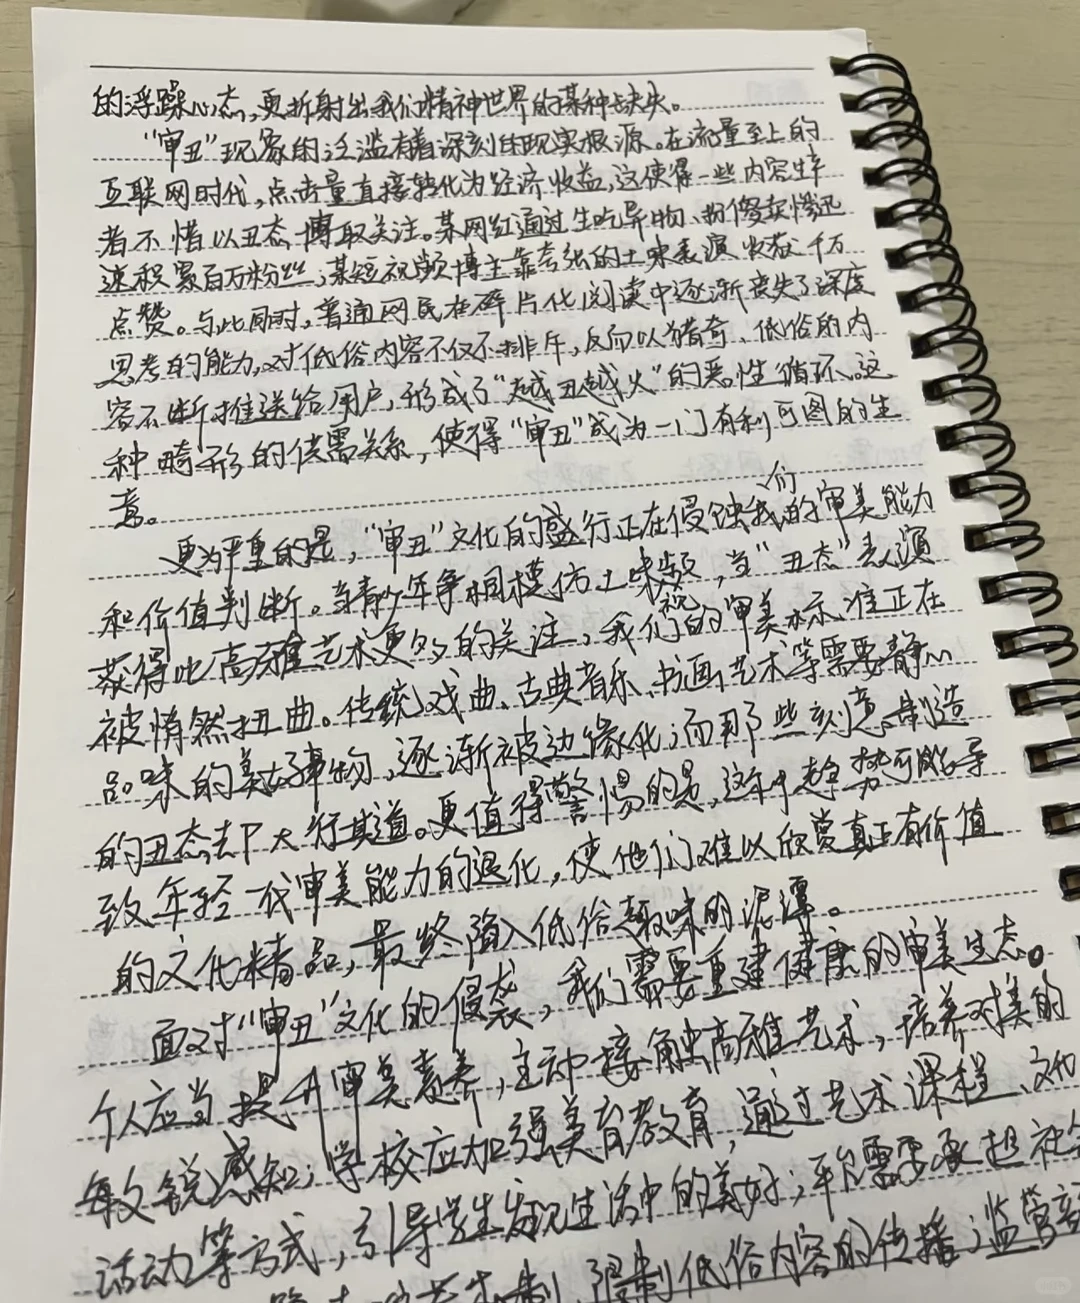 的浮躁心态,更折射出我们精神世界的某种缺失。
"审丑"现象的泛滥有着深刻的现实根源。在流量至上的
互联网时代,点击量直接转化为经济收益,这使得一些内容生产
者不惜以丑态博取关注。某网红通过生吃异物、扮傻卖惨迅
速积累百万粉丝;某短视频博主靠夸张的土味表演收获千万
点赞。与此同时,普通网民在碎片化阅读中逐渐丧失了深度
思考的能力,对低俗内容不仅不排斥,反而以猎奇、低俗的内
容不断推送给用户,形成了"越丑越火"的恶性循环。这
种畸形的供需关系,使得"审丑"成为一门有利可图的生
意。
更为严重的是,"审丑"文化的盛行正在侵蚀我们的审美能力
和价值判断。当青少年争相模仿土味视频,当"丑态"表演
获得比高雅艺术更多的关注,我们的审美标准正在
被悄然扭曲。传统戏曲、古典音乐、书画艺术等需要静心
品味的美好事物,逐渐被边缘化;而那些刻意制造
的丑态却大行其道。更值得警惕的是,这种趋势可能导
致年轻一代审美能力的退化,使他们难以欣赏真正有价值
的文化精品,最终陷入低俗趣味的泥潭。
面对"审丑"文化的侵袭,我们需要重建健康的审美生态。
个人应当提升审美素养,主动接触高雅艺术,培养对美的
敏锐感知;学校应加强美育教育,通过艺术课程、文化
活动等方式,引导学生发现生活中的美好;平台需要承担社会
限制低俗内容的传播;监管部